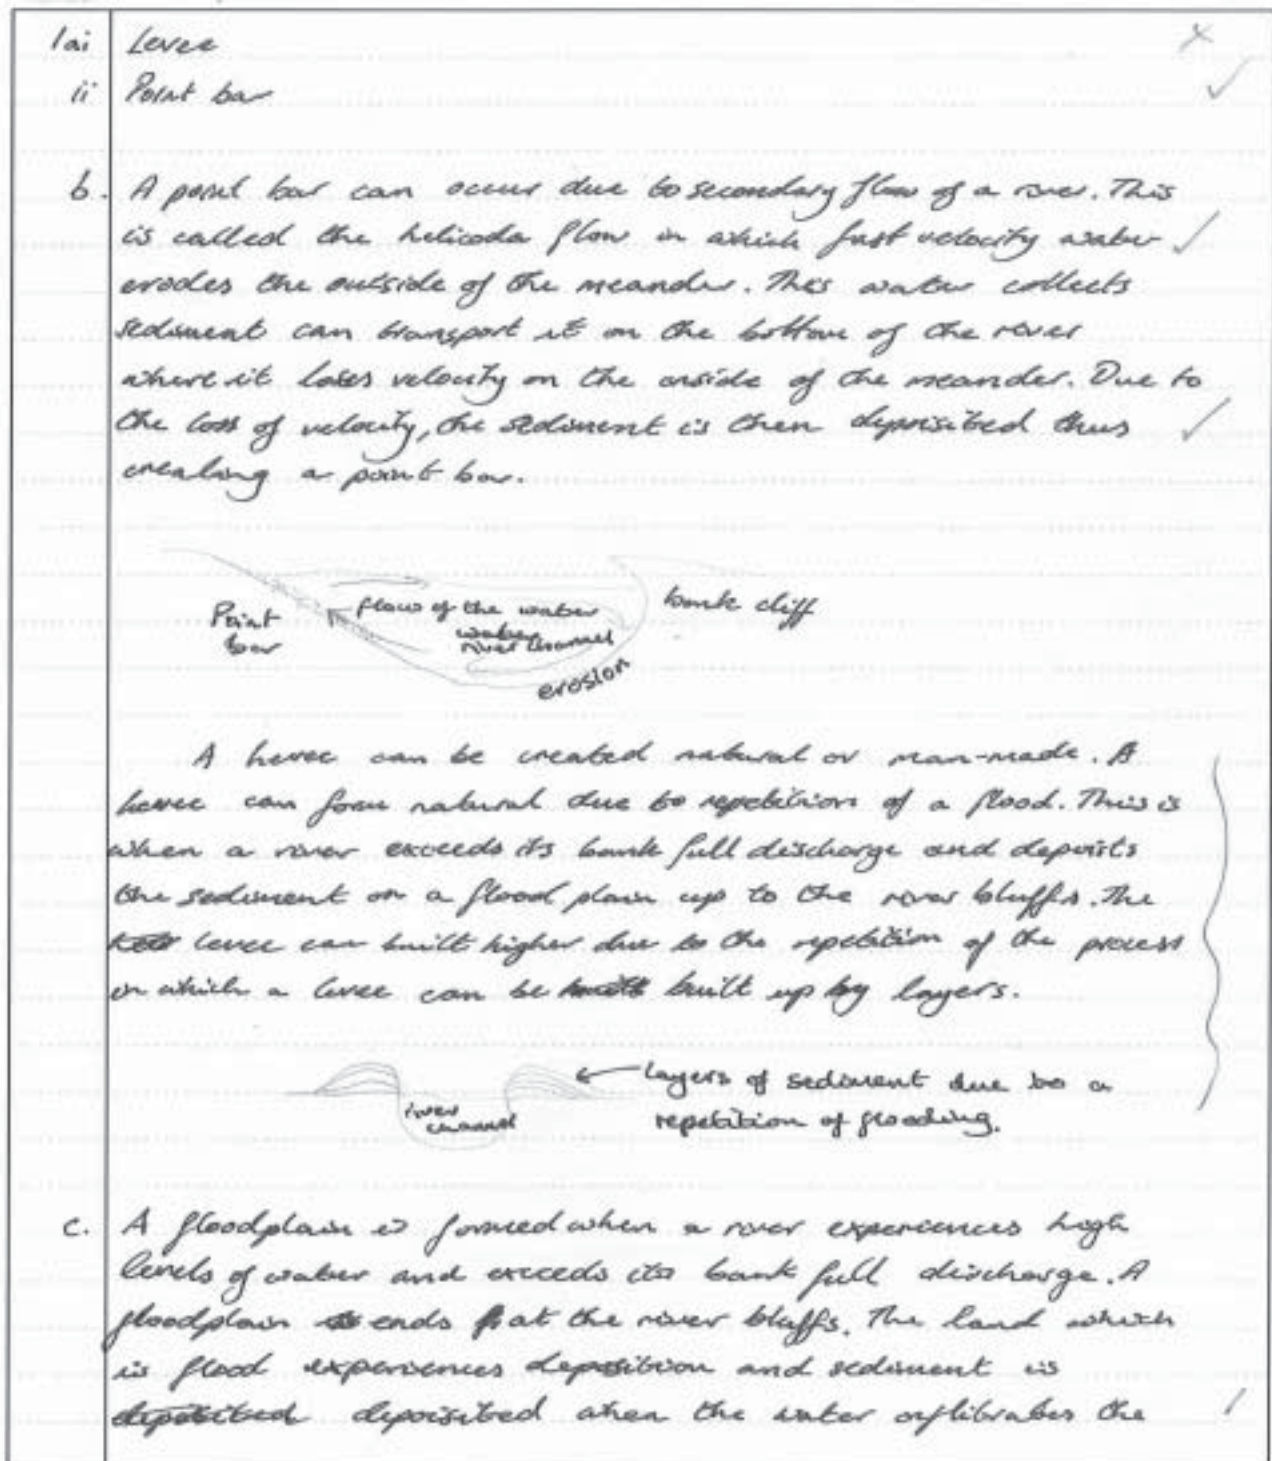 1ai Levee
ii Point bar
b. A point bar can occur due to secondary flow of a river. This
is called the helicoda flow in which fast velocity water
erodes the outside of the meander. This water collects
sediment can transport it on the bottom of the river
where it loses velocity on the inside of the meander. Due to
the loss of velocity, the sediment is then deposited thus
creating a point bar.
Point bar
flow of the water
river channel
erosion
bank cliff
A levee can be created natural or man-made. A
levee can form natural due to repetition of a flood. This is
when a river exceeds its bank full discharge and deposits
the sediment on a flood plain up to the river bluffs. The
levee can built higher due to the repetition of the process
in which a levee can be built up by layers.
river channel
layers of sediment due to a
repetition of flooding.
c. A floodplain is formed when a river experiences high
levels of water and exceeds its bank full discharge. A
floodplain ends at the river bluffs. The land which
is flood experiences deposition and sediment is
deposited deposited when the water the